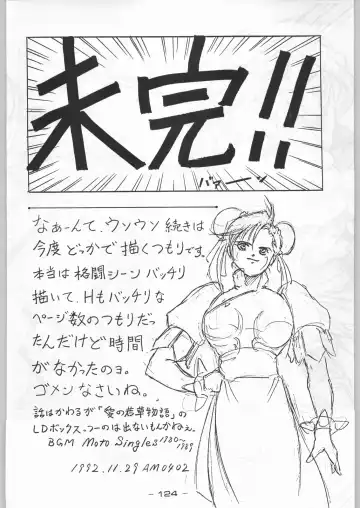 未完!!
バァーン
なぁーんて、ウンウン続きは
今度どっかで描くつもりです。
本当は格闘シーンバッチリ
描いて、Hもバッチリな
ページ数のつもりだっ
たんだけど時間
がなかったのョ。
ゴメンなさいね。
話はかわるが「愛の若草物語」の
LDボックスっつーのは出ないもんかねぇ。
BGM Moto Singles 1980~1989
1992.11.29 AM0402
- 124 -